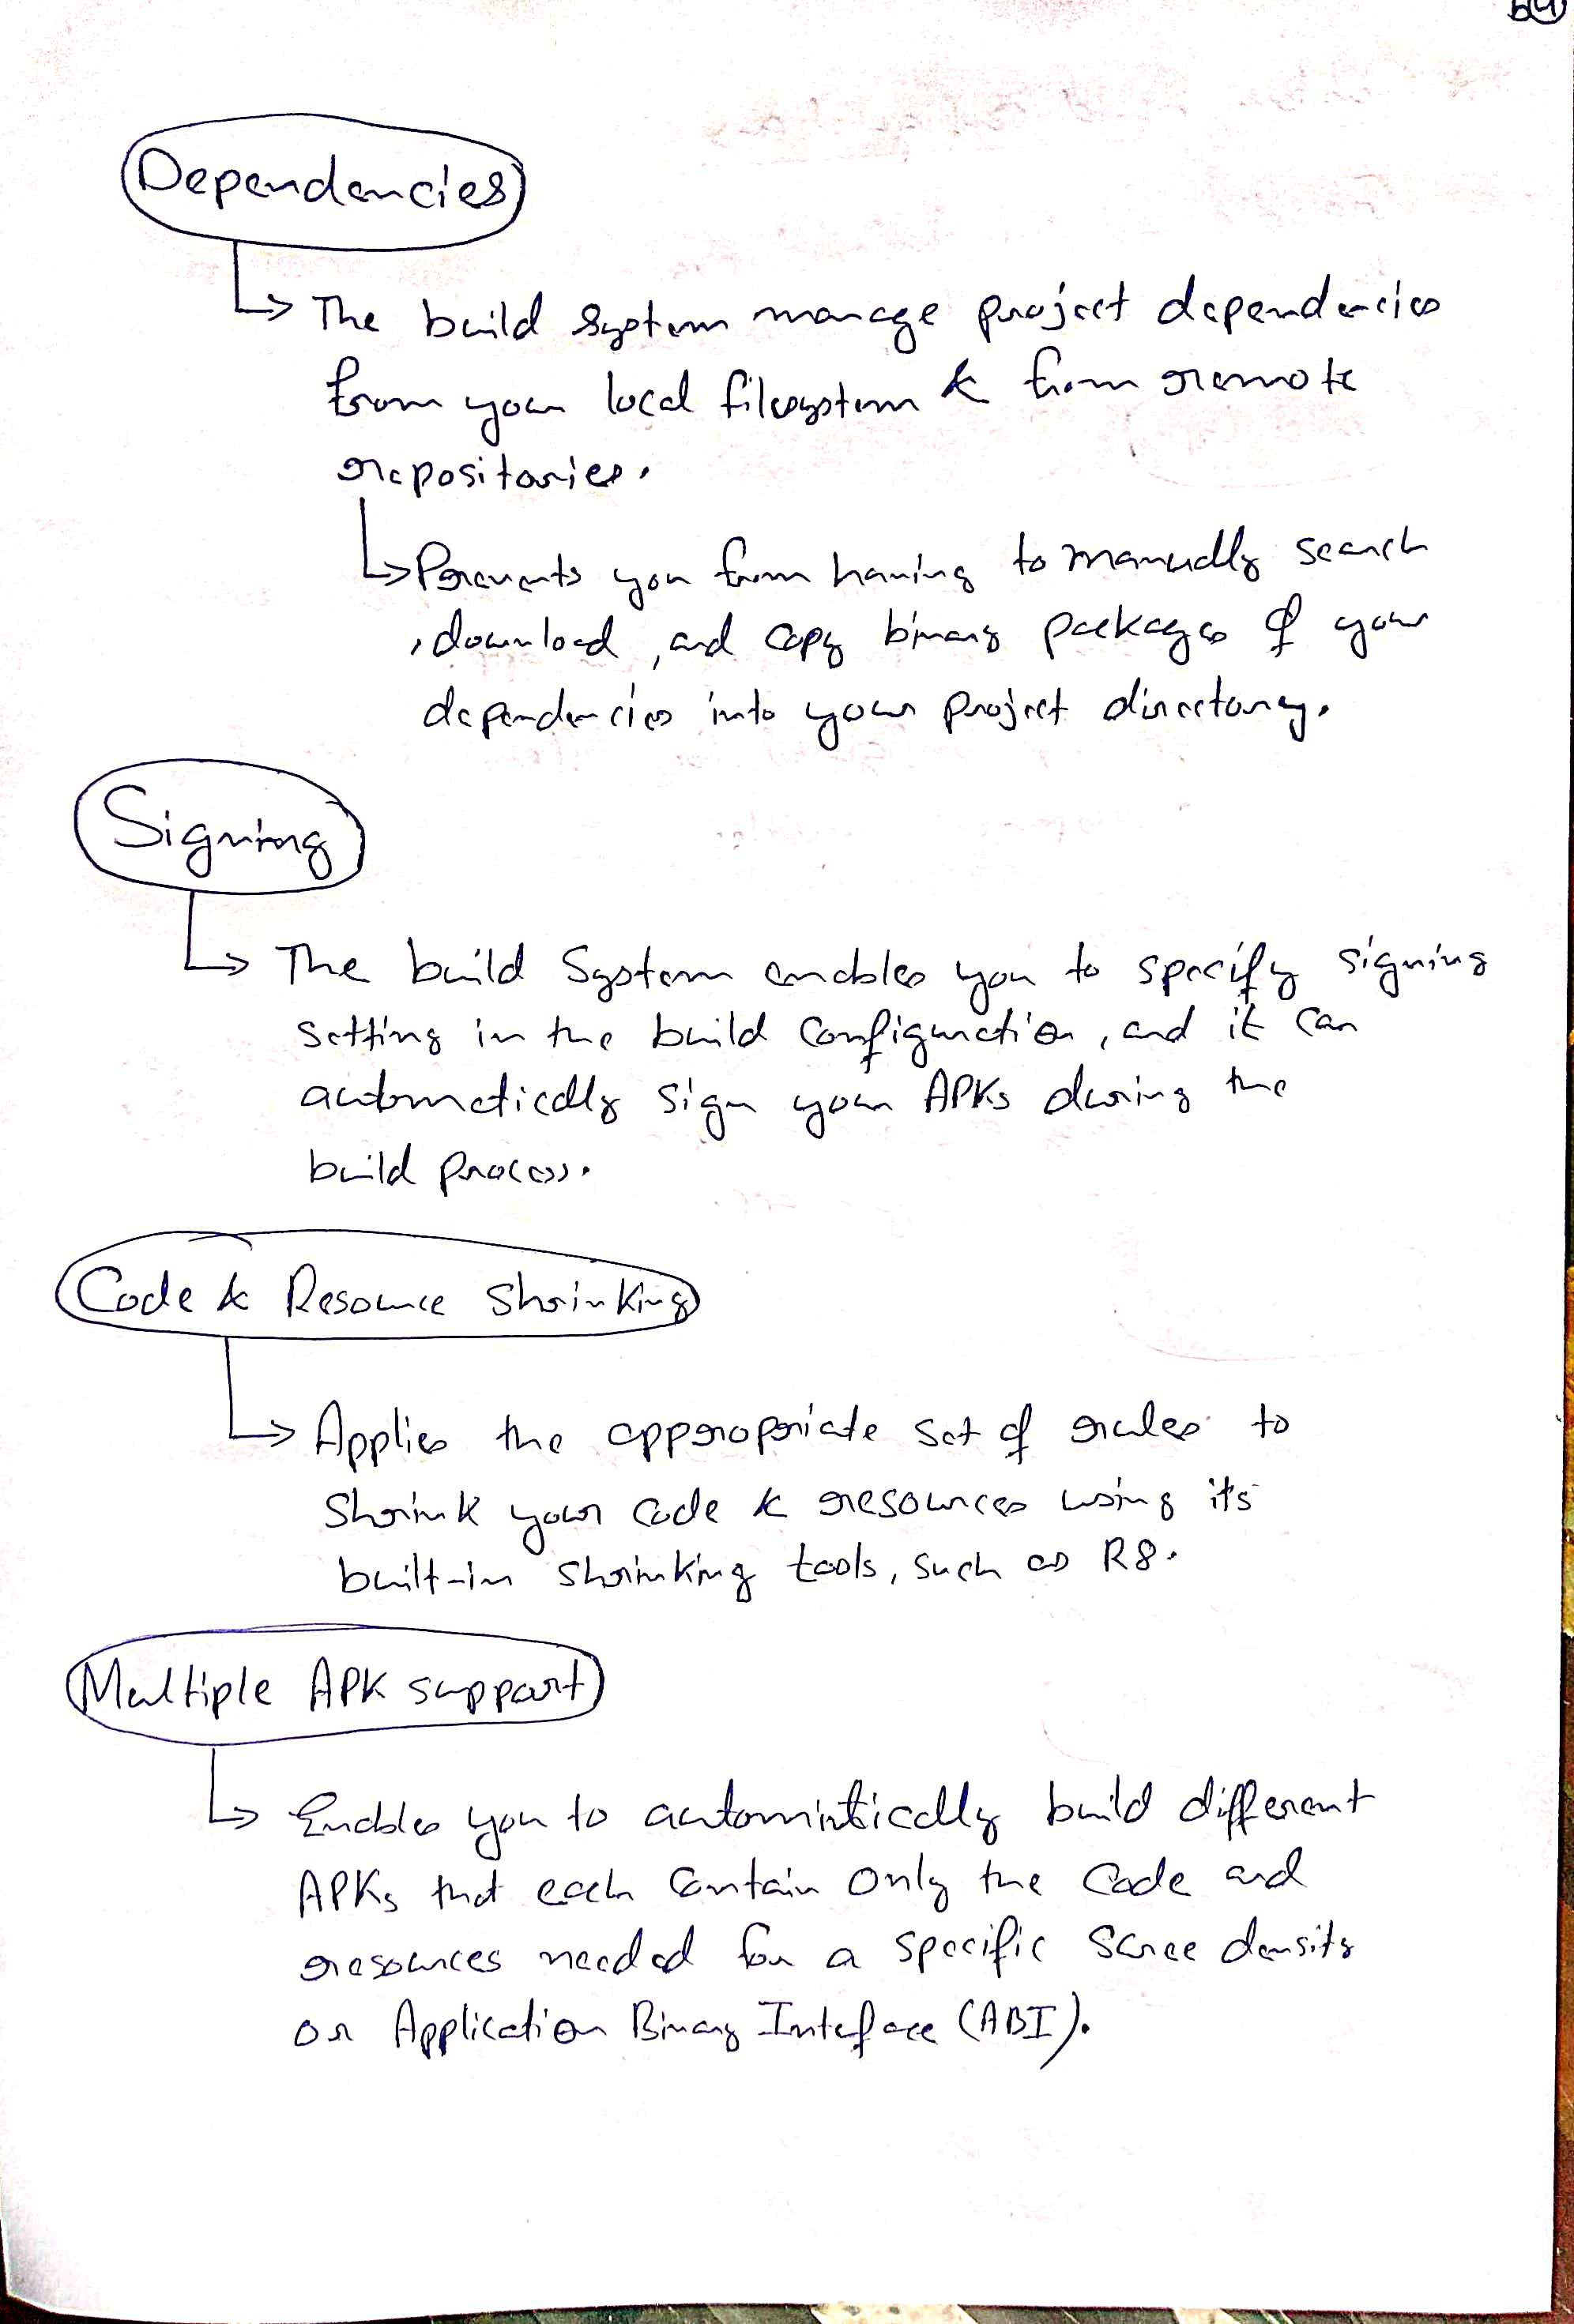 Dependencies
The build system manage project dependencies
from your local filesystem & from remote
repositories.
Prevents you from having to manually search
, download, and copy binary packages of your
dependencies into your project directory.
Signing
The build System enables you to specify signing
setting in the build configuration, and it can
automatically sign your APKs during the
build process.
Code & Resource Shrinking
Applies the appropriate set of rules to
shrink your code & resources using its
built-in shrinking tools, such as R8.
Multiple APK support
Enables you to automintically build different
APKs that each contain only the code and
resources needed for a specific scree density
or Application Binary Inteface (ABI).